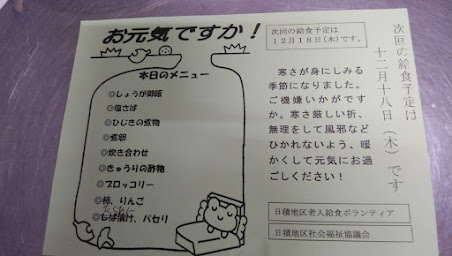 お元気ですか！
本日のメニュー
◎しょうが御飯
◎塩さば
◎ひじきの煮物
◎煮卵
◎炊き合わせ
◎きゅうりの酢物
◎ブロッコリー
◎柿、りんご
たくあん
◎しば漬け、パセリ
次回の給食予定は
１２月１８日（木）です。
寒さが身にしみる
季節になりました。
ご機嫌いかがです
か。寒さ厳しい折、
無理をして風邪など
ひかれないよう、暖
かくして元気にお過
ごしください！
日積地区老人給食ボランティア
日積地区社会福祉協議会
次回の給食予定は
十二月十八日（木）です